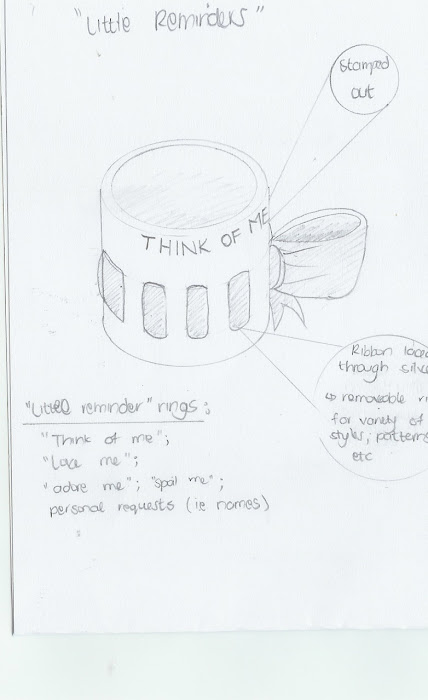 "Little Reminders"
Stamped
out
THINK OF ME
Ribbon lace
through silve
↳ removeable ri
for variety of
styles, patterns
etc
"Little reminder" rings:
"Think of me";
"Love me";
"adore me"; "spoil me";
personal requests (ie names)